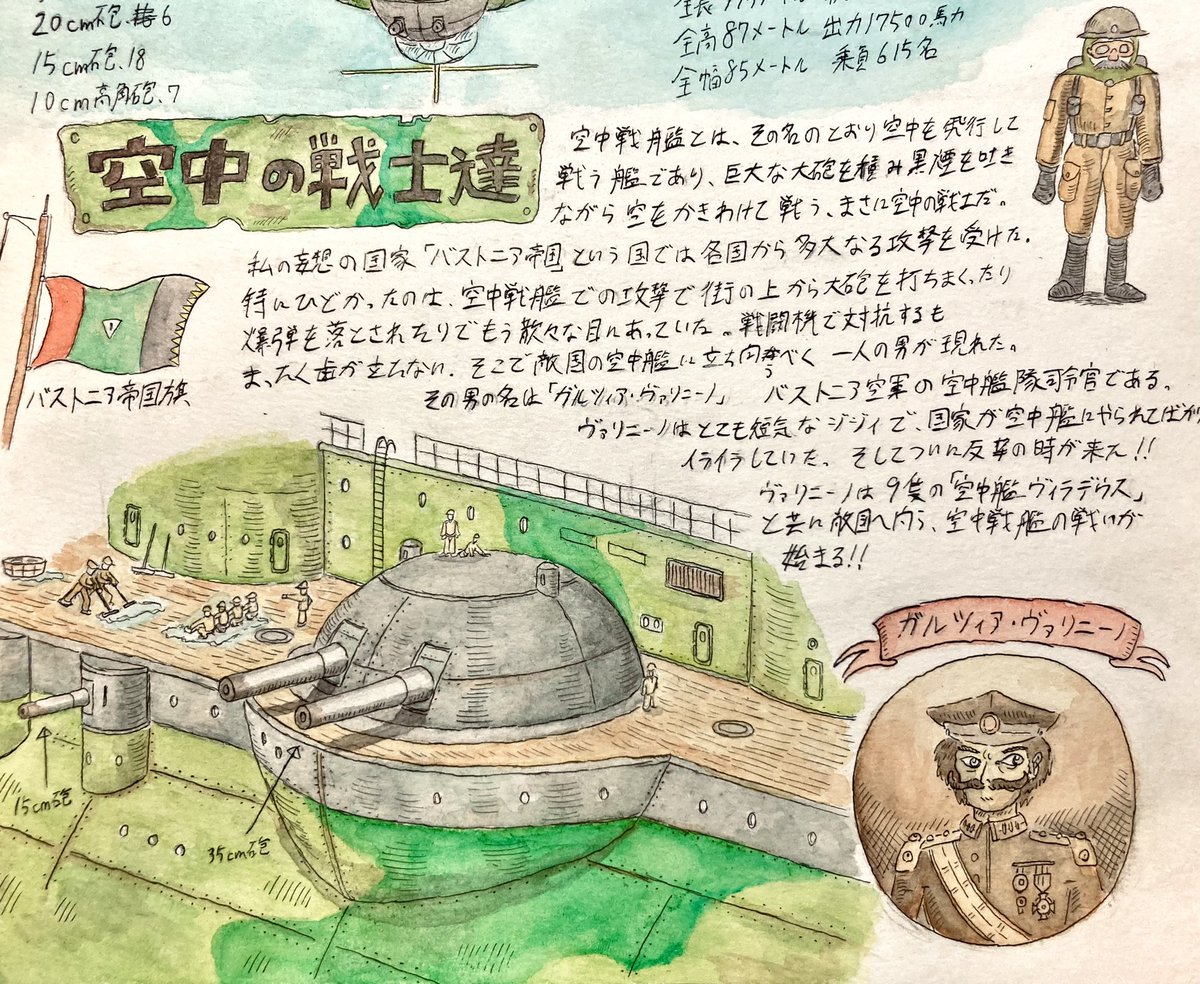 20cm砲.6
15cm砲.18
10cm高角砲.7
全高87メートル 出力17500馬力
全幅85メートル 乗員615名
空中の戦士達
空中戦艦とは、その名のとおり空中を発行して
戦う艦であり、巨大な大砲を積み黒煙を吐き
ながら空をかきわけて戦う、まさに空中の戦士だ。
私の妄想の国家「バストニア帝国」という国では各国から多大なる攻撃を受けた.
特にひどかったのは、空中戦艦での攻撃で街の上から大砲を打ちまくったり
爆弾を落とされたりでもう散々な目にあっていた。戦闘機で対抗するも
まったく歯が立たない. そこで敵国の空中艦に立ち向うべく 一人の男が現れた。
その男の名は「ガルツィア・ヴァリニーノ」 バストニア空軍の空中艦隊司令官である。
ヴァリニーノはとても短気なジジィで、国家が空中艦にやられてばかり
イライラしていた。そしてついに反撃の時が来た!!
ヴァリニーノは9隻の「空中艦ヴィラデウス」
と共に敵国へ向う、空中戦艦の戦いが
始まる!!
バストニア帝国旗
15cm砲
35cm砲
ガルツィア・ヴァリニーノ